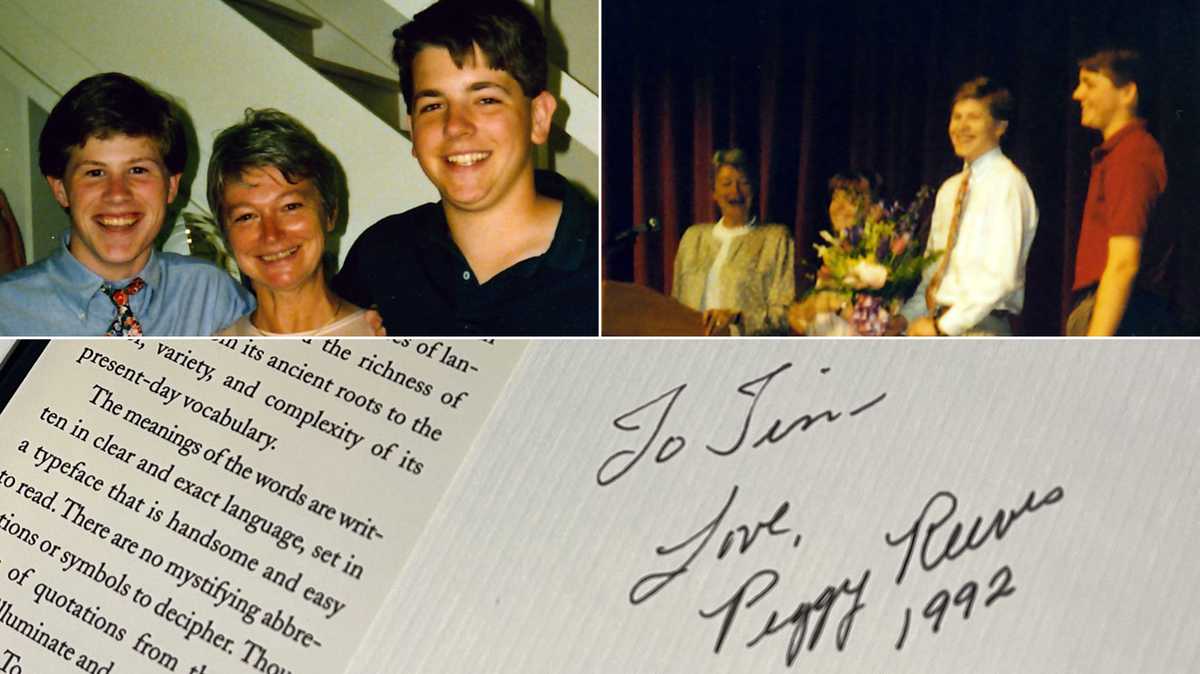 of lan-
the richness of
its ancient roots to the
variety, and complexity of its
present-day vocabulary.
The meanings of the words are writ-
ten in clear and exact language, set in
a typeface that is handsome and easy
to read. There are no mystifying abbre-
or symbols to decipher.
of quotations from
and
To
To Tim-
Love,
Peggy Reeves
1992